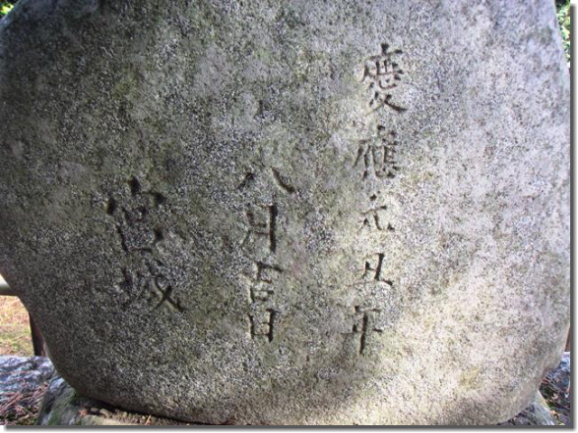 慶應元丑年
八月吉日
宮城